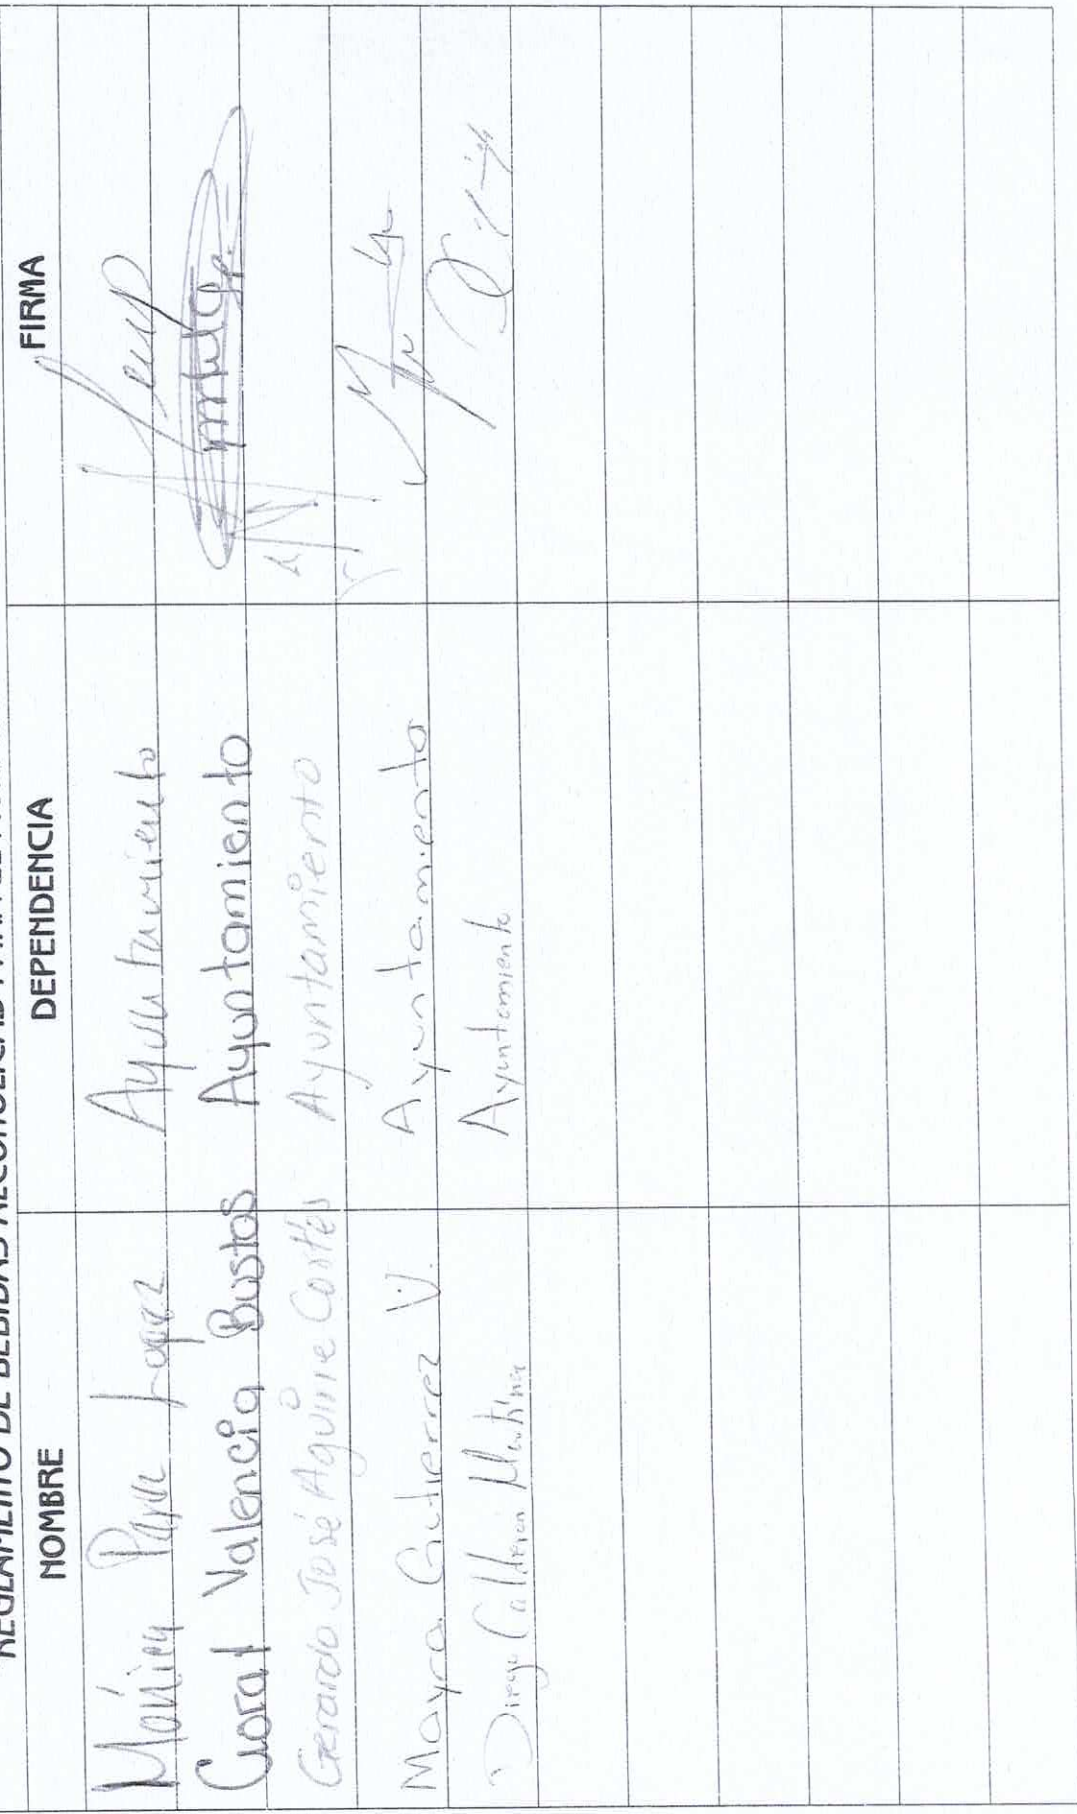 REGLAMENTO DE BEBIDAS ALCOHÓLICAS PARA
NOMBRE DEPENDENCIA FIRMA
Mónica Parra Lopez Ayuntamiento
Coral Valencia Bustos Ayuntamiento
Gerardo José Aguirre Cortés Ayuntamiento
Mayra Gutierrez V. Ayuntamiento
Diego Calderon Ayuntamiento